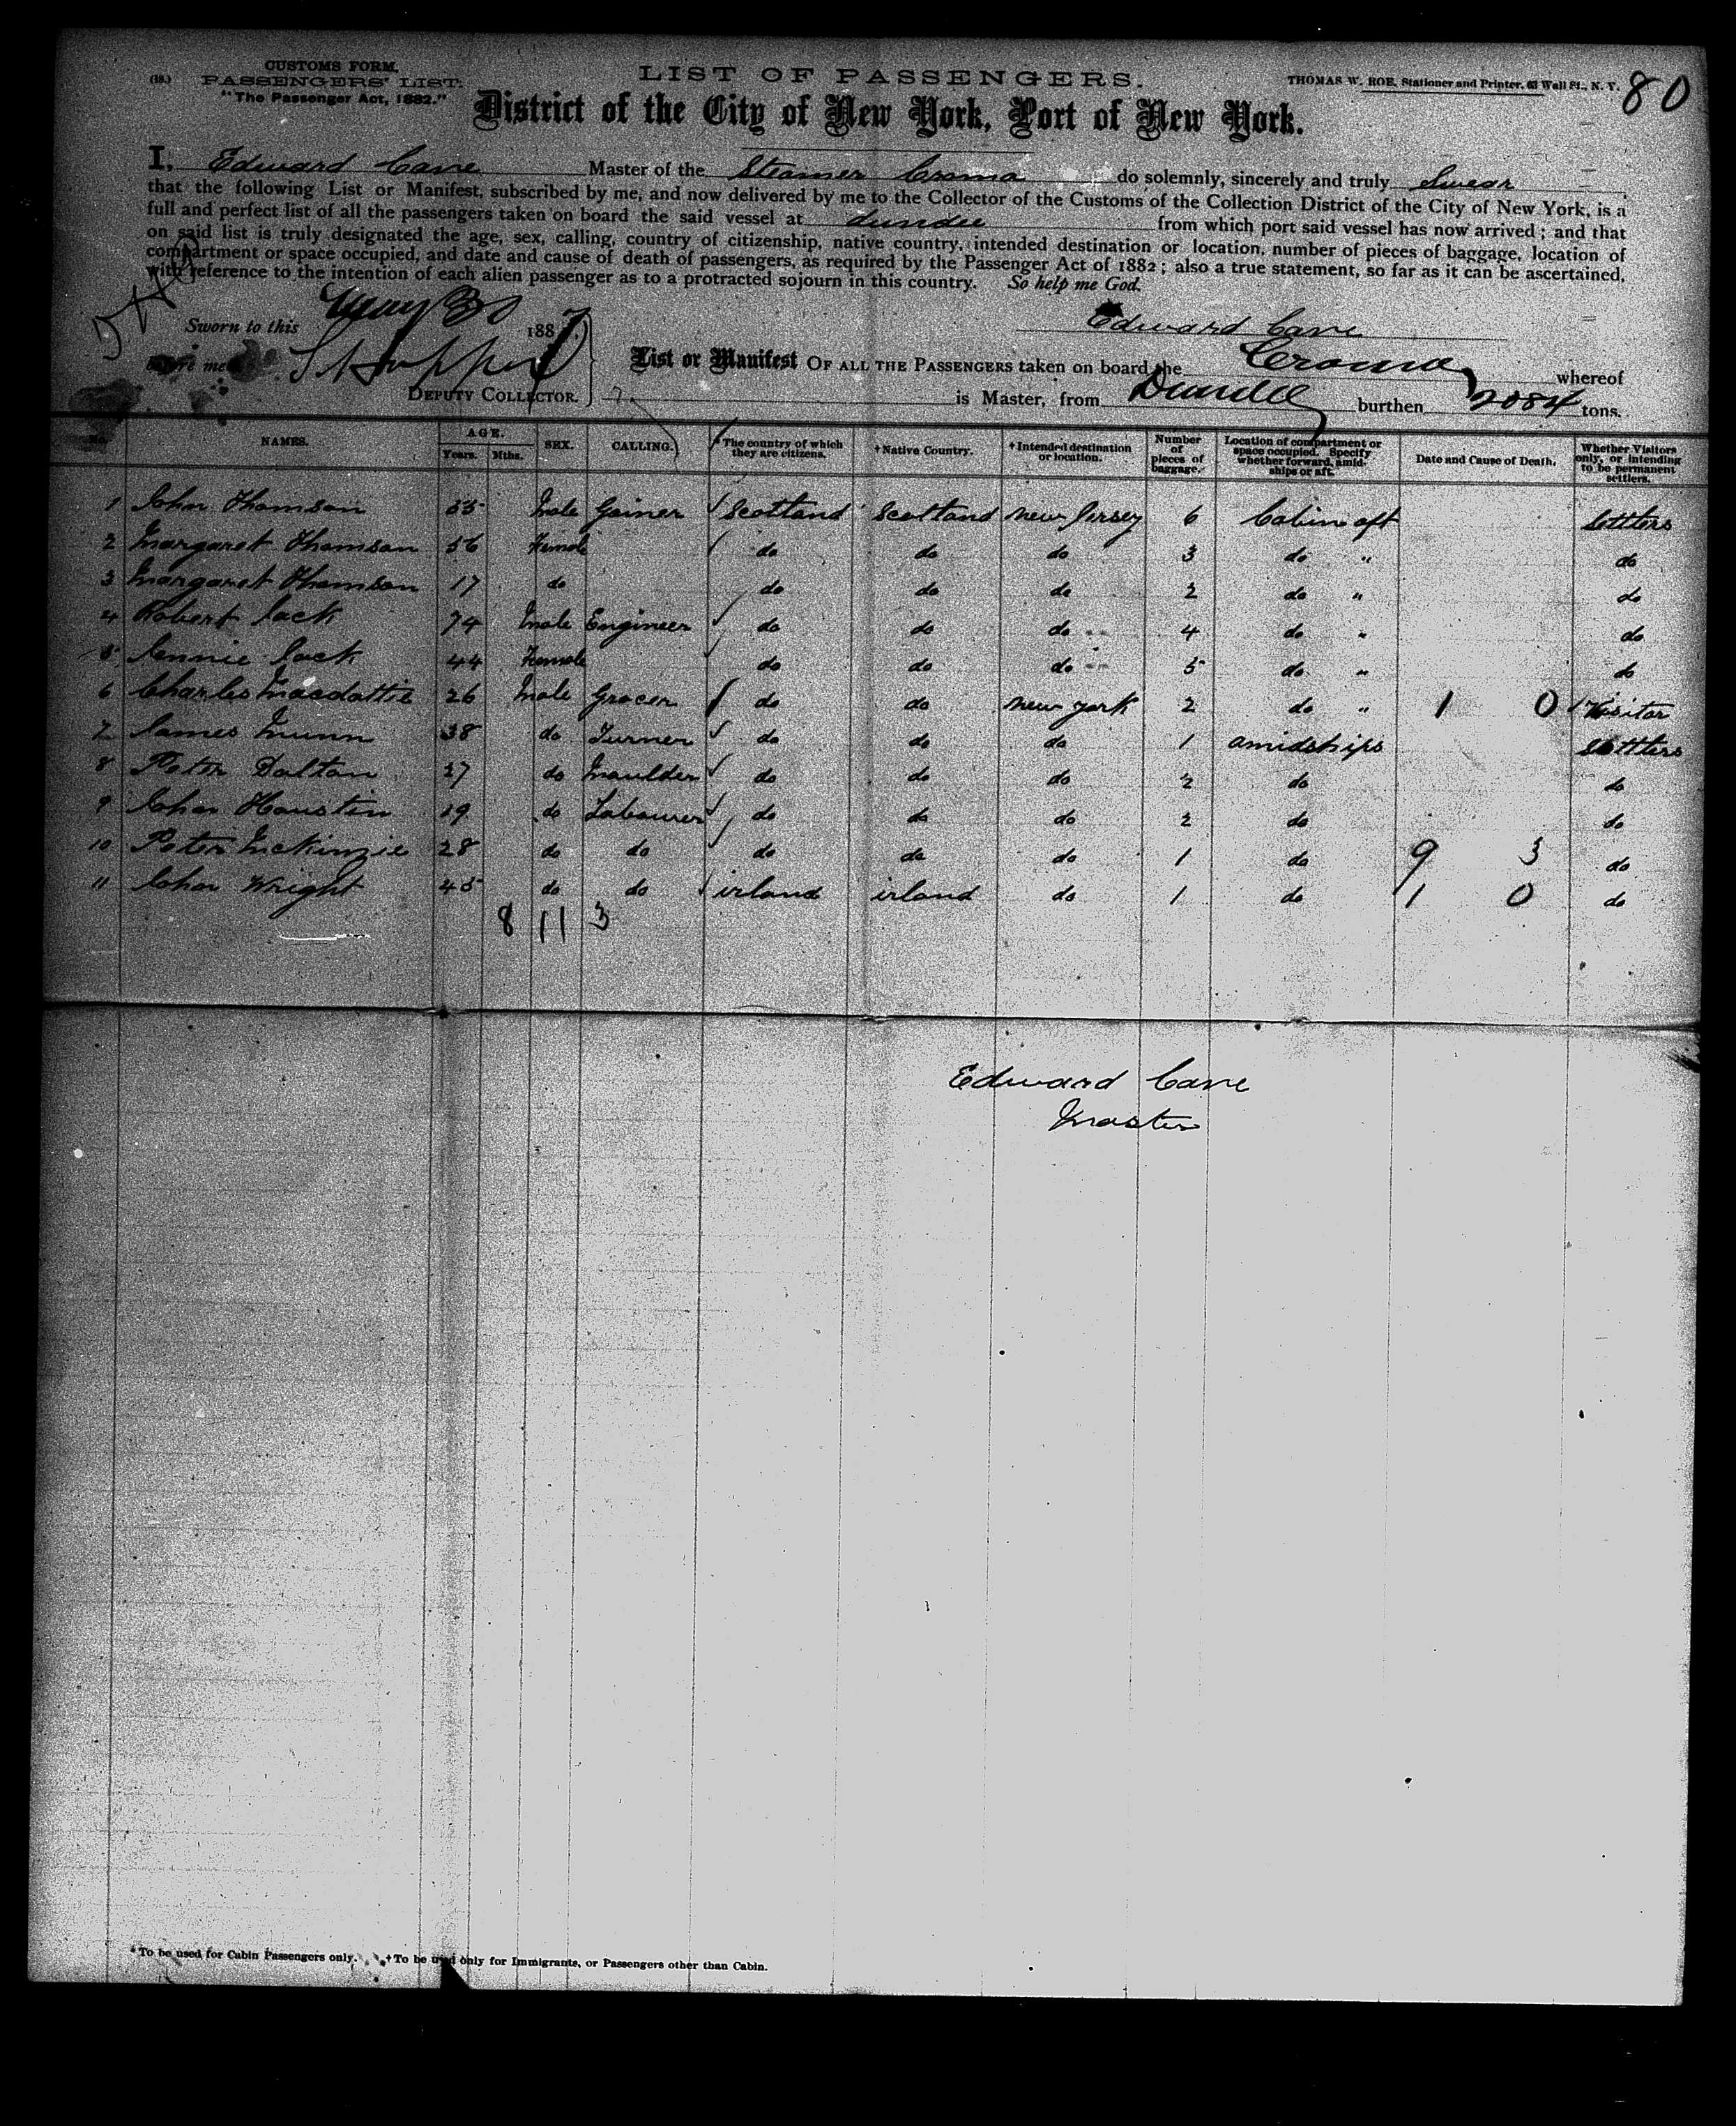 80
(18.) CUSTOMS FORM.
PASSENGERS' LIST.
"The Passenger Act, 1882."
LIST OF PASSENGERS.
THOMAS W. ROE, Stationer and Printer, 63 Wall St., N. Y.
District of the City of New York, Port of New York.
I, Edward Cave Master of the Steamer Croma do solemnly, sincerely and truly Swear
that the following List or Manifest, subscribed by me, and now delivered by me to the Collector of the Customs of the Collection District of the City of New York, is a
full and perfect list of all the passengers taken on board the said vessel at dundee from which port said vessel has now arrived; and that
on said list is truly designated the age, sex, calling, country of citizenship, native country, intended destination or location, number of pieces of baggage, location of
compartment or space occupied, and date and cause of death of passengers, as required by the Passenger Act of 1882; also a true statement, so far as it can be ascertained,
with reference to the intention of each alien passenger as to a protracted sojourn in this country. So help me God.
Sworn to this May 30 1887
Edward Cave
before me
DEPUTY COLLECTOR.
List or Manifest OF ALL THE PASSENGERS taken on board the Croma whereof
is Master, from Dundee burthen 2084 tons.
No. NAMES. AGE. Years. Mths. SEX. CALLING. The country of which they are citizens. †Native Country. †Intended destination or location. Number of pieces of baggage. Location of compartment or space occupied. Specify whether forward, amidships or aft. Date and Cause of Death. Whether Visitors only, or intending to be permanent settlers.
1 John Thomson 55 Male Joiner Scotland Scotland new Jersey 6 Cabin aft Settlers
2 Margaret Thomson 56 Female do do do 3 do " do
3 Margaret Thomson 17 do do do do 2 do " do
4 Robert Jack 74 Male Engineer do do do 4 do " do
5 Jennie Jack 44 Female do do do 5 do " do
6 Charles 26 Male Grocer do do new york 2 do " 1 0 Visitor
7 James Munn 38 do Turner do do do 1 amidships Settlers
8 Peter Dalton 27 do Moulder do do do 2 do do
9 John Houston 19 do Labourer do do do 2 do do
10 Peter McKinzie 28 do do do do do 1 do 9 3 do
11 John Wright 45 do do irland irland do 1 do 1 0 do
8 11 3
Edward Cave
Master
*To be used for Cabin Passengers only. †To be used only for Immigrants, or Passengers other than Cabin.